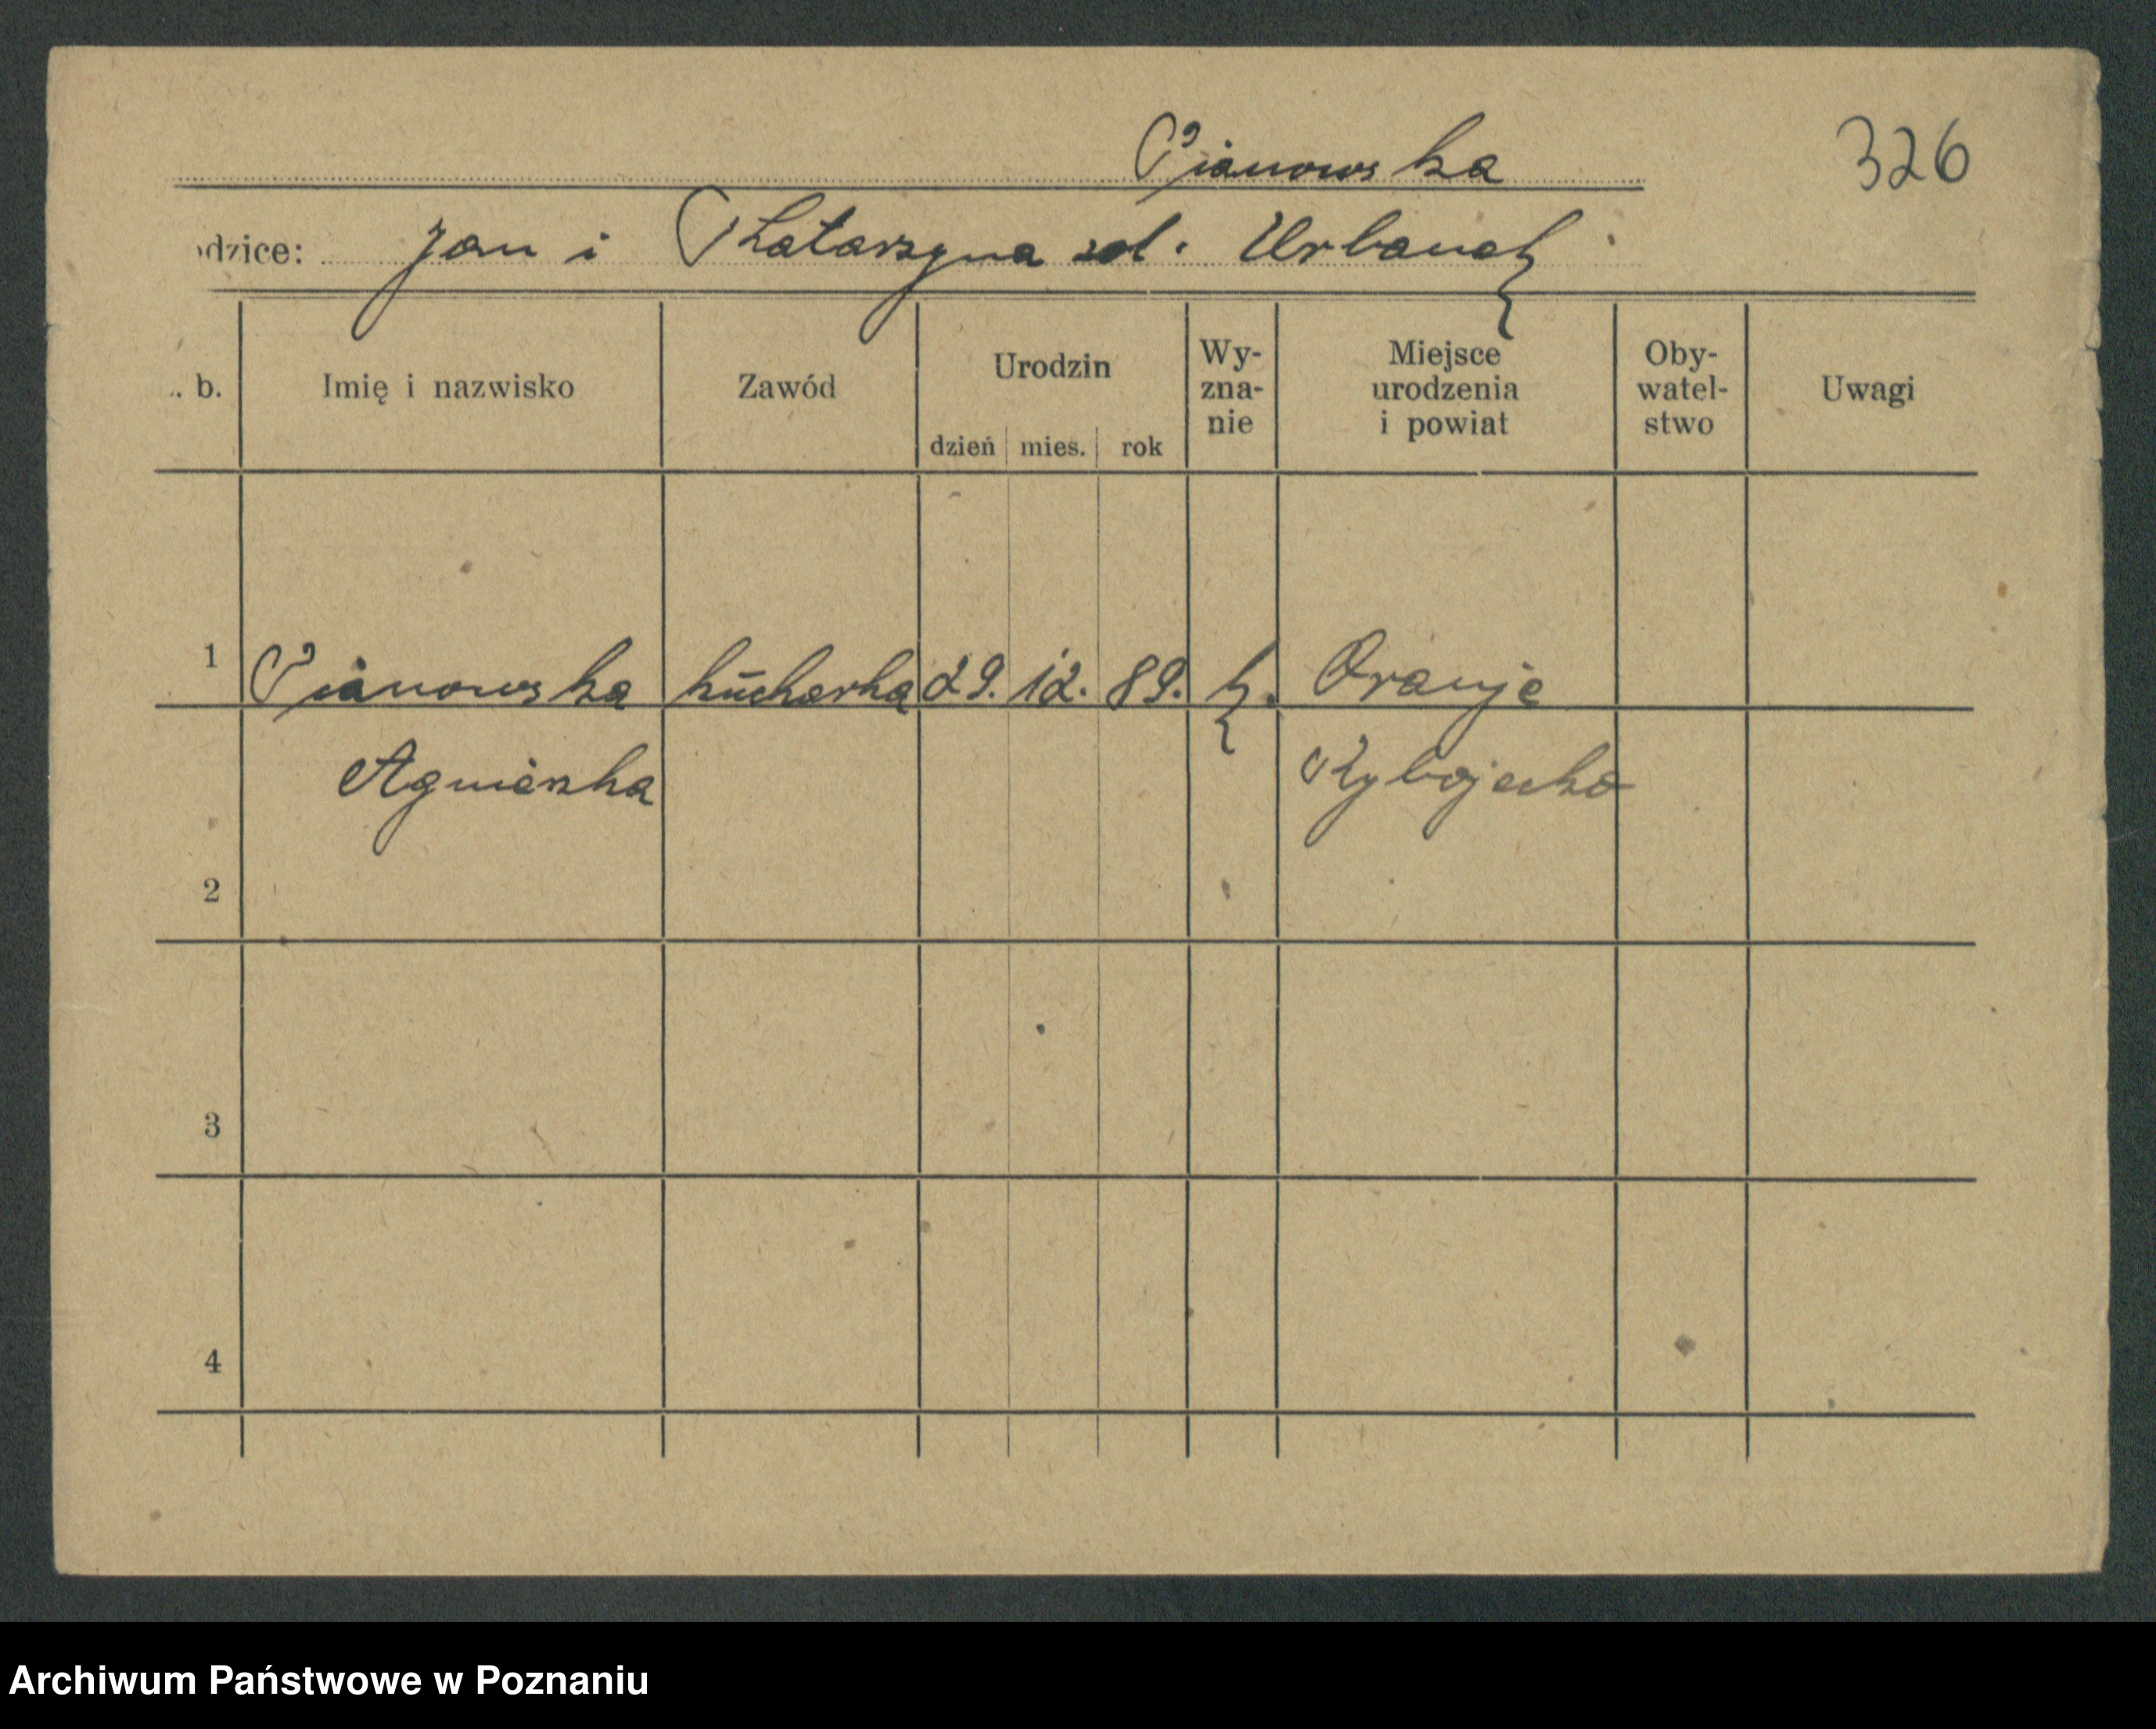 Pianowska
326
odzice: Jan i Katarzyna zd. Urbanek
. b.
Imię i nazwisko
Zawód
Urodzin
dzień mies. rok
Wy-
zna-
nie
Miejsce
urodzenia
i powiat
Oby-
watel-
stwo
Uwagi
1 Pianowska kucharka 29. 12. 89. k.
Agnieszka
2
3
4
Archiwum Państwowe w Poznaniu